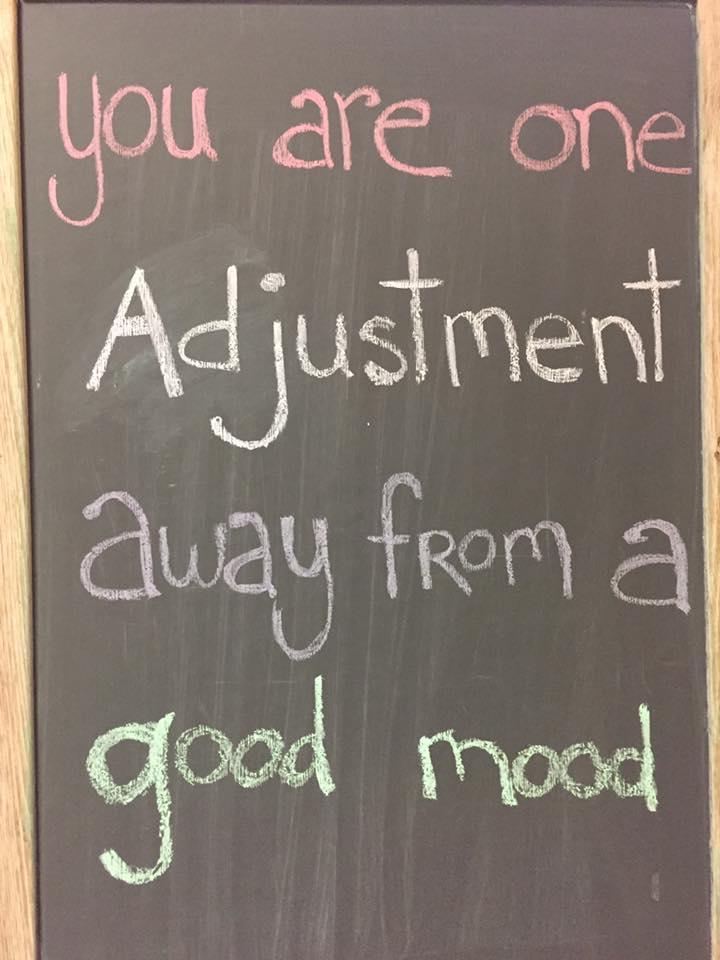 you are one
Adjustment
away from a
good mood